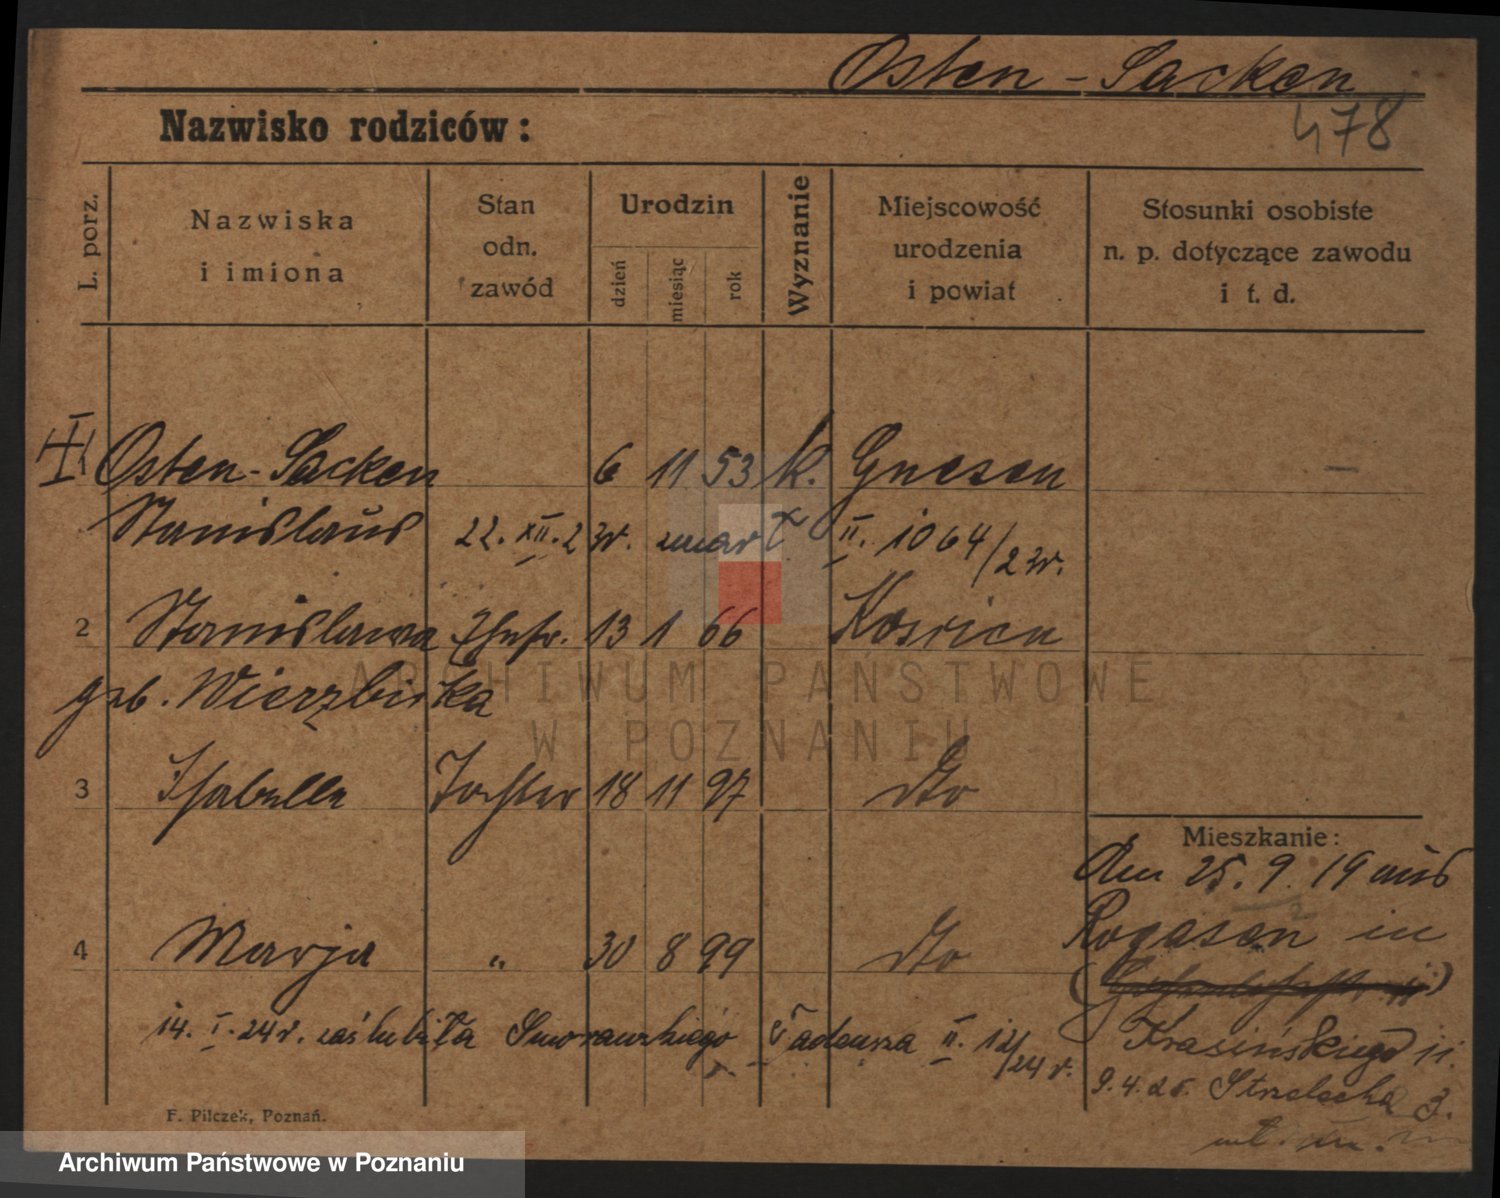 Osten-Sacken
478
Nazwisko rodziców:
L. porz.
Nazwiska
i imiona
Stan
odn.
zawód
Urodzin
dzień
miesiąc
rok
Wyznanie
Miejscowość
urodzenia
i powiat
Stosunki osobiste
n. p. dotyczące zawodu
i t. d.
Osten-Sacken 6 11 53 k. Gnesen
Stanislaus 22. XII. 2 zmarł II. 1064/2
2 Stanislawa Ehefr. 13 1 66
geb. Wierzbicka
3 Isabella Tochter 18 11 97 dto
4 Marja " 30 8 99 dto
14. I. 24 r. zaślubiła Smorawskiego Tadeusza II. 12/24 r.
Mieszkanie:
Am 25. 9. 19 aus
Rogasen in
Krasińskiego 11.
9. 4. 26. Strzelecka 3.
F. Pilczek, Poznań.
ARCHIWUM PAŃSTWOWE
W POZNANIU
Archiwum Państwowe w Poznaniu